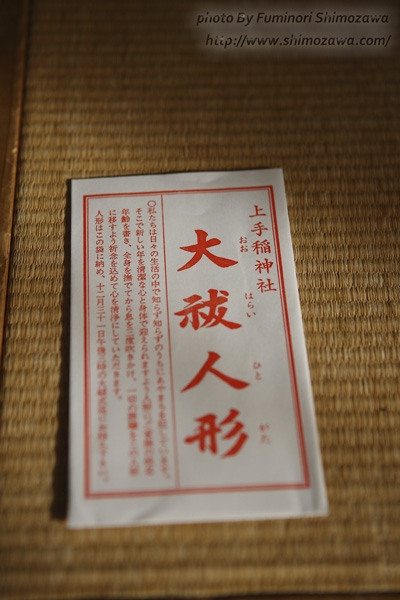 photo By Fuminori Shimozawa
http://www.shimozawa.com/
上手稲神社
大祓人形
おお はらい ひと がた
〇私たちは日々の生活の中で知らず知らずのうちにあやまちを犯しています。
そこで新しい年を清潔な心と身体で迎えられますよう人形に
年齢を書き、全身を撫でてから息を三度吹きかけ、一切の罪穢をこの人形
に移すよう祈念を込めて心を清浄にしていただきます。
人形はこの袋に納め、十二月三十一日午後三時の大祓式